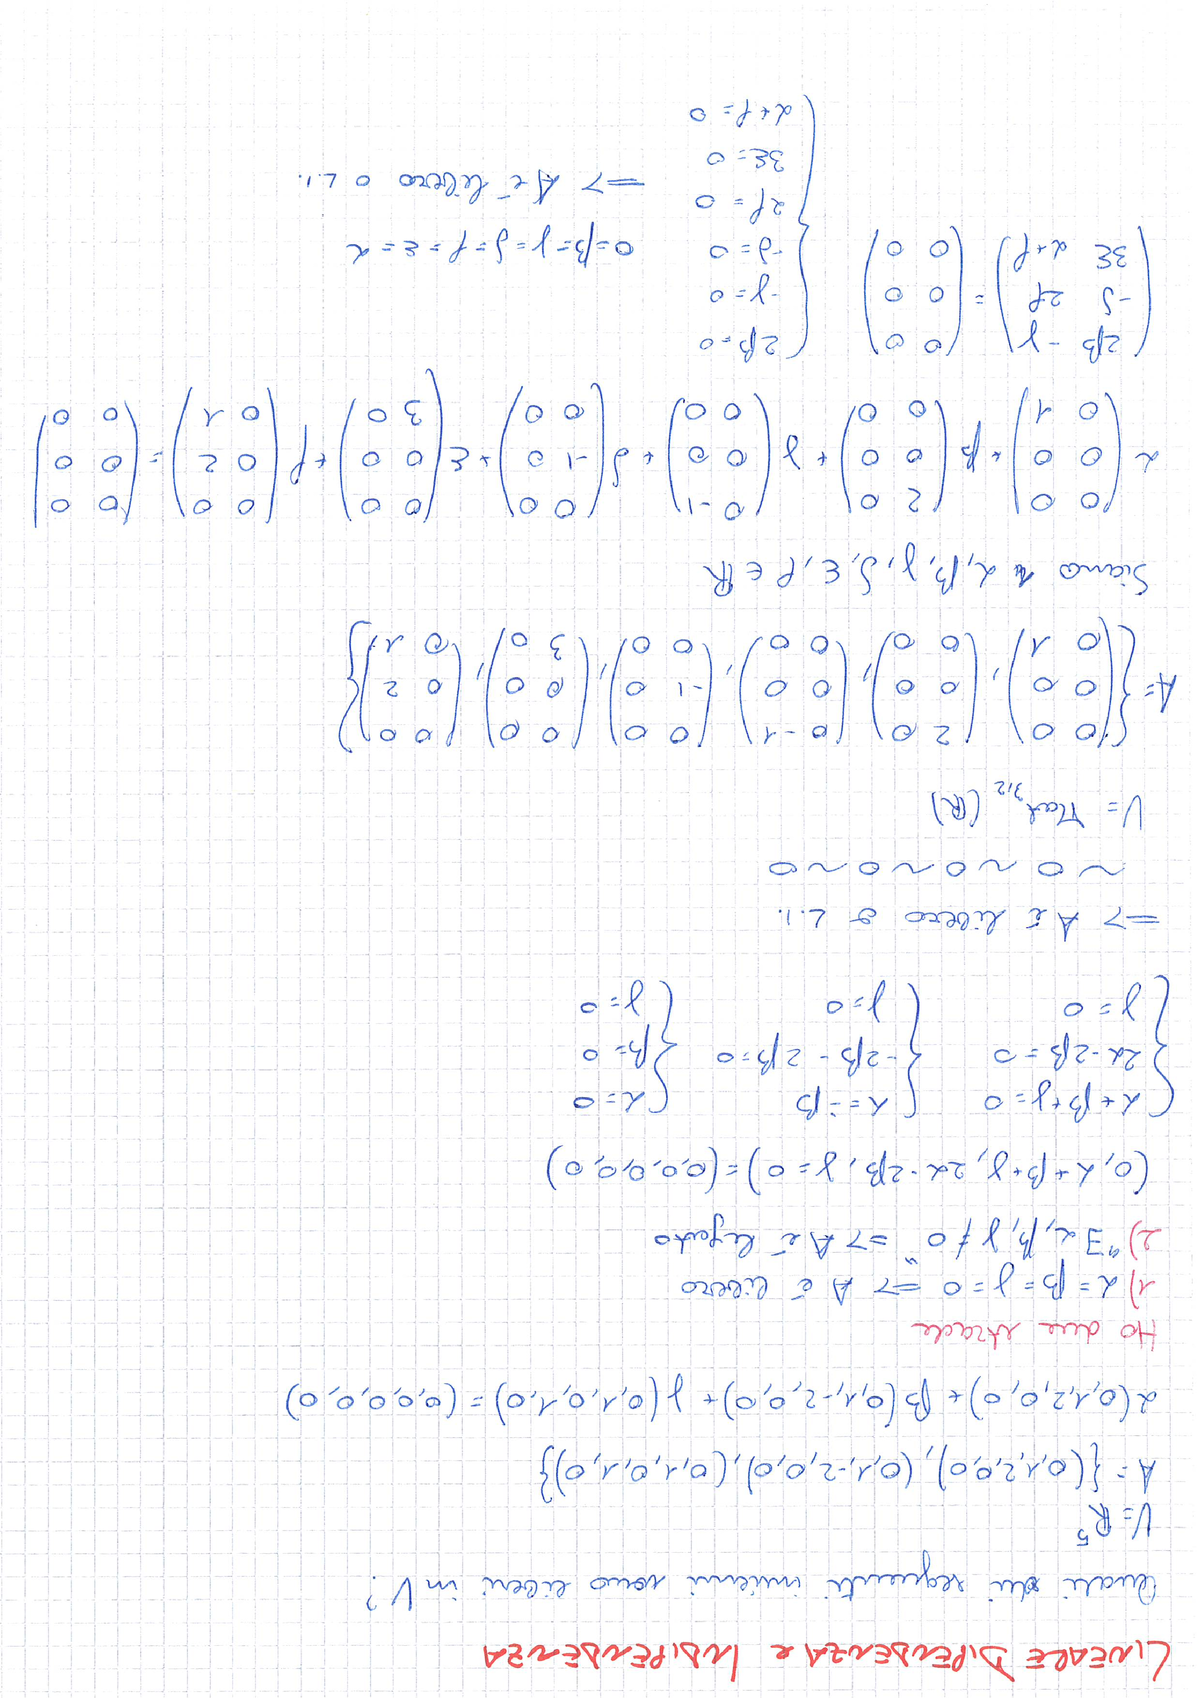 LINEARE DIPENDENZA e INDIPENDENZA
Quali dei seguenti insiemi sono liberi in V?
V = R⁵
A = {(0,1,2,0,0), (0,1,-2,0,0), (0,1,0,1,0)}
α(0,1,2,0,0) + β(0,1,-2,0,0) + γ(0,1,0,1,0) = (0,0,0,0,0)
Ho due strade
1) α = β = γ = 0 => A é libero
2) "∃ α, β, γ ≠ 0" => A é legato
(0, α+β+γ, 2α-2β, γ = 0) = (0,0,0,0,0)
{ α+β+γ = 0 { α = -β { α = 0
2α-2β = 0 -2β - 2β = 0 β = 0
γ = 0 γ = 0 γ = 0
=> A é libero o L.I.
~ 0 ~ 0 ~ 0 ~ 0
V = Mat₃,₂ (R)
A = { (0 0 / 0 0 / 0 1), (2 0 / 0 0 / 0 0), (0 -1 / 0 0 / 0 0), (0 0 / -1 0 / 0 0), (0 0 / 0 0 / 3 0), (0 0 / 0 2 / 0 1) }
Siano α, β, γ, δ, ε, ρ ∈ R
α (0 0 / 0 0 / 0 1) + β (2 0 / 0 0 / 0 0) + γ (0 -1 / 0 0 / 0 0) + δ (0 0 / -1 0 / 0 0) + ε (0 0 / 0 0 / 3 0) + ρ (0 0 / 0 2 / 0 1) = (0 0 / 0 0 / 0 0)
(2β -γ / -δ 2ρ / 3ε α+ρ) = (0 0 / 0 0 / 0 0)
{ 2β = 0
-γ = 0
-δ = 0
2ρ = 0
3ε = 0
α+ρ = 0
0 = β = γ = δ = ρ = ε = α
=> A é libero o L.I.